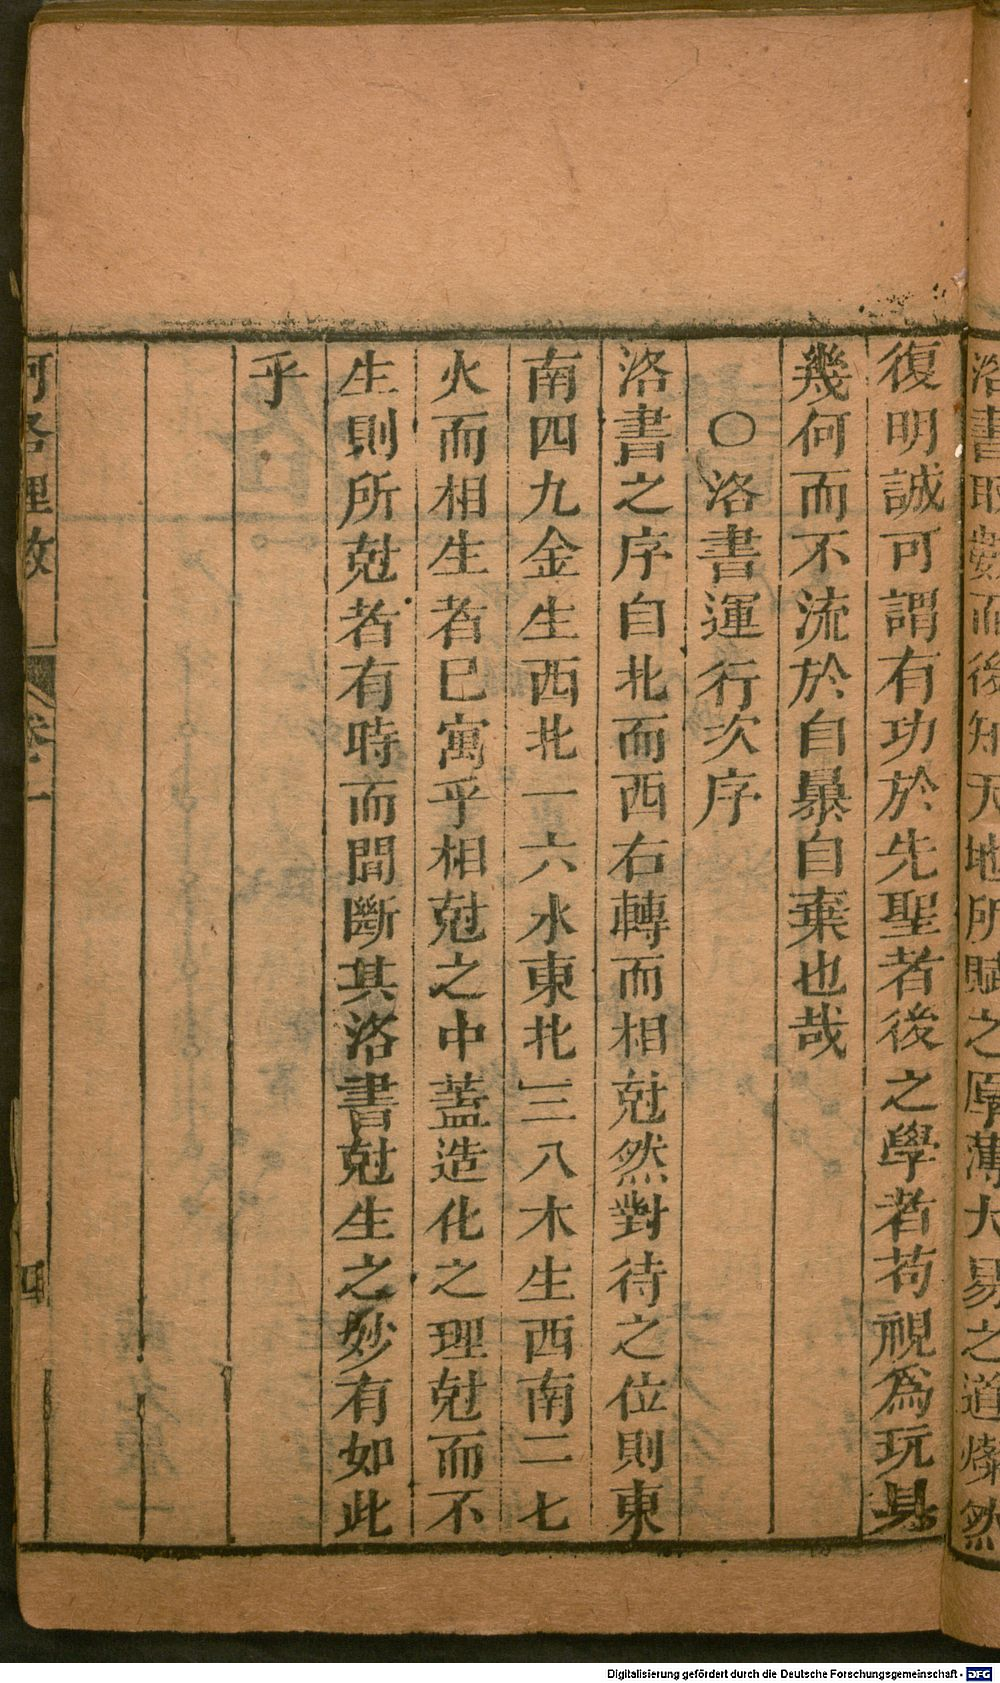 洛書取數而後知天地所賦之厚薄大易之道燦然
復明誠可謂有功於先聖者後之學者苟視為玩具
幾何而不流於自暴自棄也哉
○洛書運行次序
洛書之序自北而西右轉而相尅然對待之位則東
南四九金生西北一六水東北三八木生西南二七
火而相生者已寓乎相尅之中蓋造化之理尅而不
生則所尅者有時而間斷其洛書尅生之妙有如此
乎
河洛理數 卷一 四
Digitalisierung gefördert durch die Deutsche Forschungsgemeinschaft - DFG